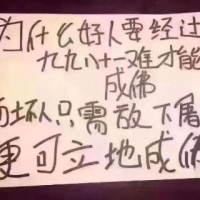 为什么好人要经过
九九八十一难才能
成佛
而坏人只需放下屠
更可立地成佛